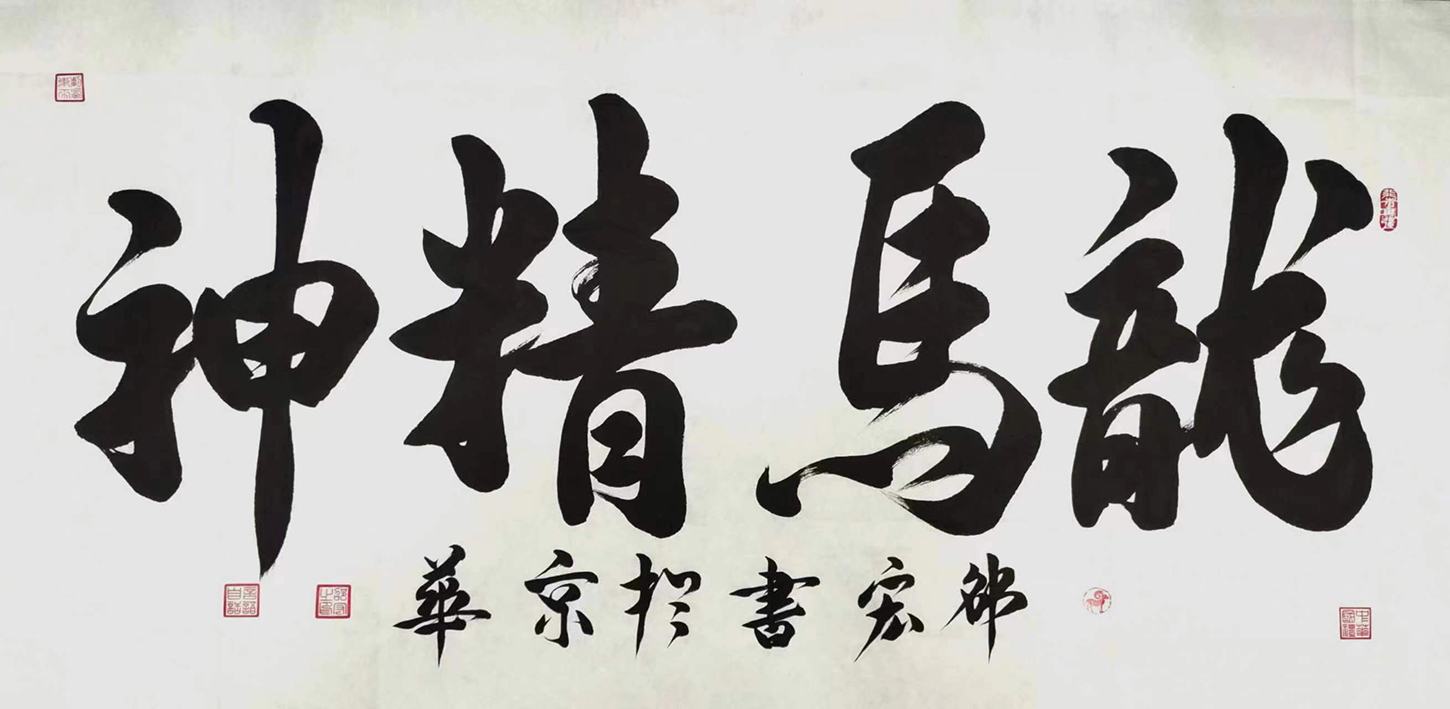 龍馬精神
邵宏書於京華